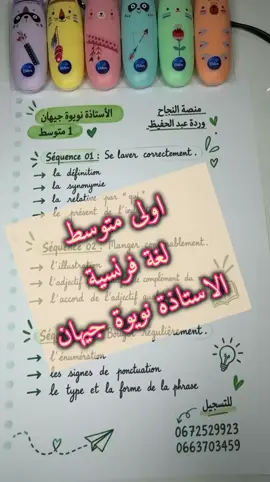 الأستاذة نويوة جيهان
1 متوسط
منصة النجاح
وردة عبد الحفيظ
Séquence 01 : Se laver correctement.
→ la définition
→ la synonymie
→ la relative par "qui"
→ le présent de l'
اولى متوسط
لغة فرنسية
الاستاذة نويوة جيهان
Séquence 02 : Manger
→ l'illustration
→ l'adjectif
→ l'accord de l'adjectif
→ l'énumération
→ les signes de ponctuation
→ le type et la forme de la phrase
للتسجيل
0672529923
0663703459